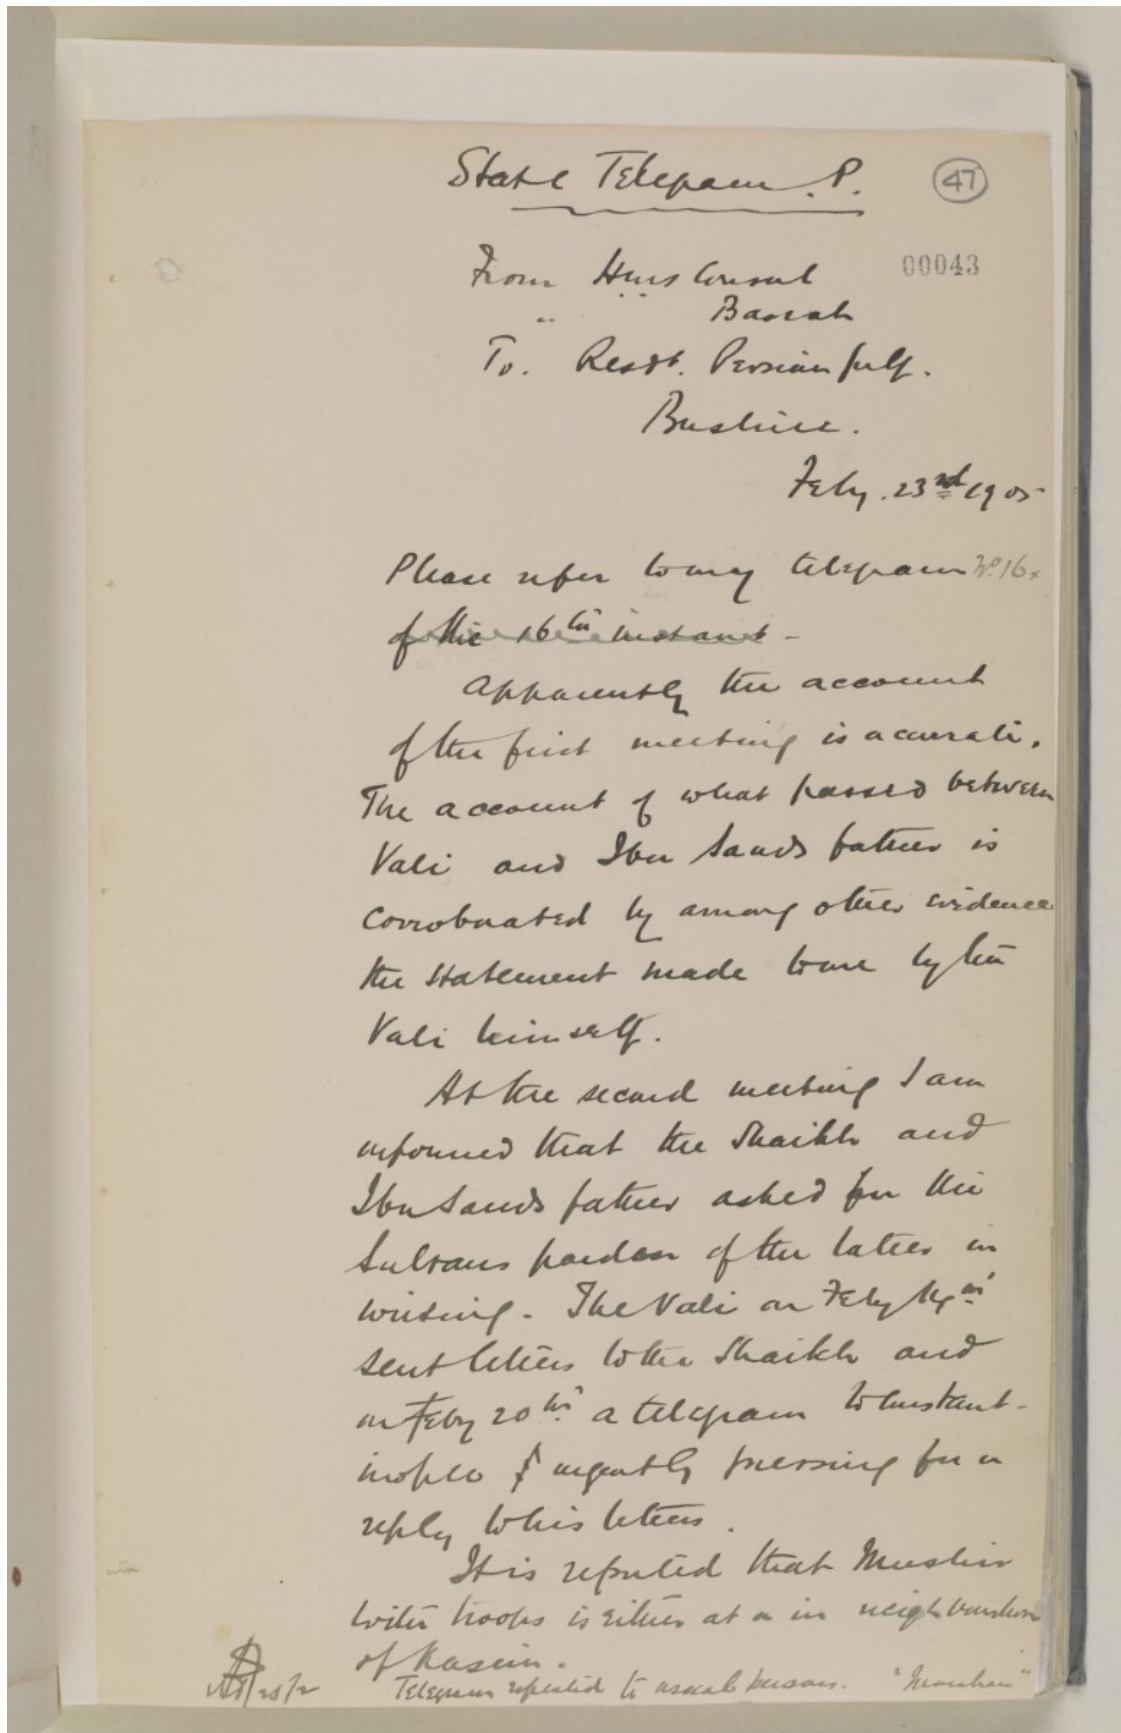 State Telegram. P.
47
00043
From HMs Consul
" Basrah
To. Resdt. Persian Gulf.
Bushire.
Feby. 23rd 1905
Please refer to my telegram No 16.
of the 16th instant -
Apparently the account
of the first meeting is accurate.
The account of what passed between
Vali and Ibn Sauds father is
corroborated by among other evidence
the statement made to me by the
Vali himself.
At the second meeting I am
informed that the Shaikh and
Ibn Sauds father asked for the
Sultans pardon of the latter in
writing. The Vali on Feby
sent letters to the Shaikh and
on Feby 20th a telegram to Constant-
inople urgently pressing for a
reply to his letters.
It is reported that Mushir
with troops is either at or in neighbourhood
of Kasim.
Telegram repeated to usual persons.
25/2